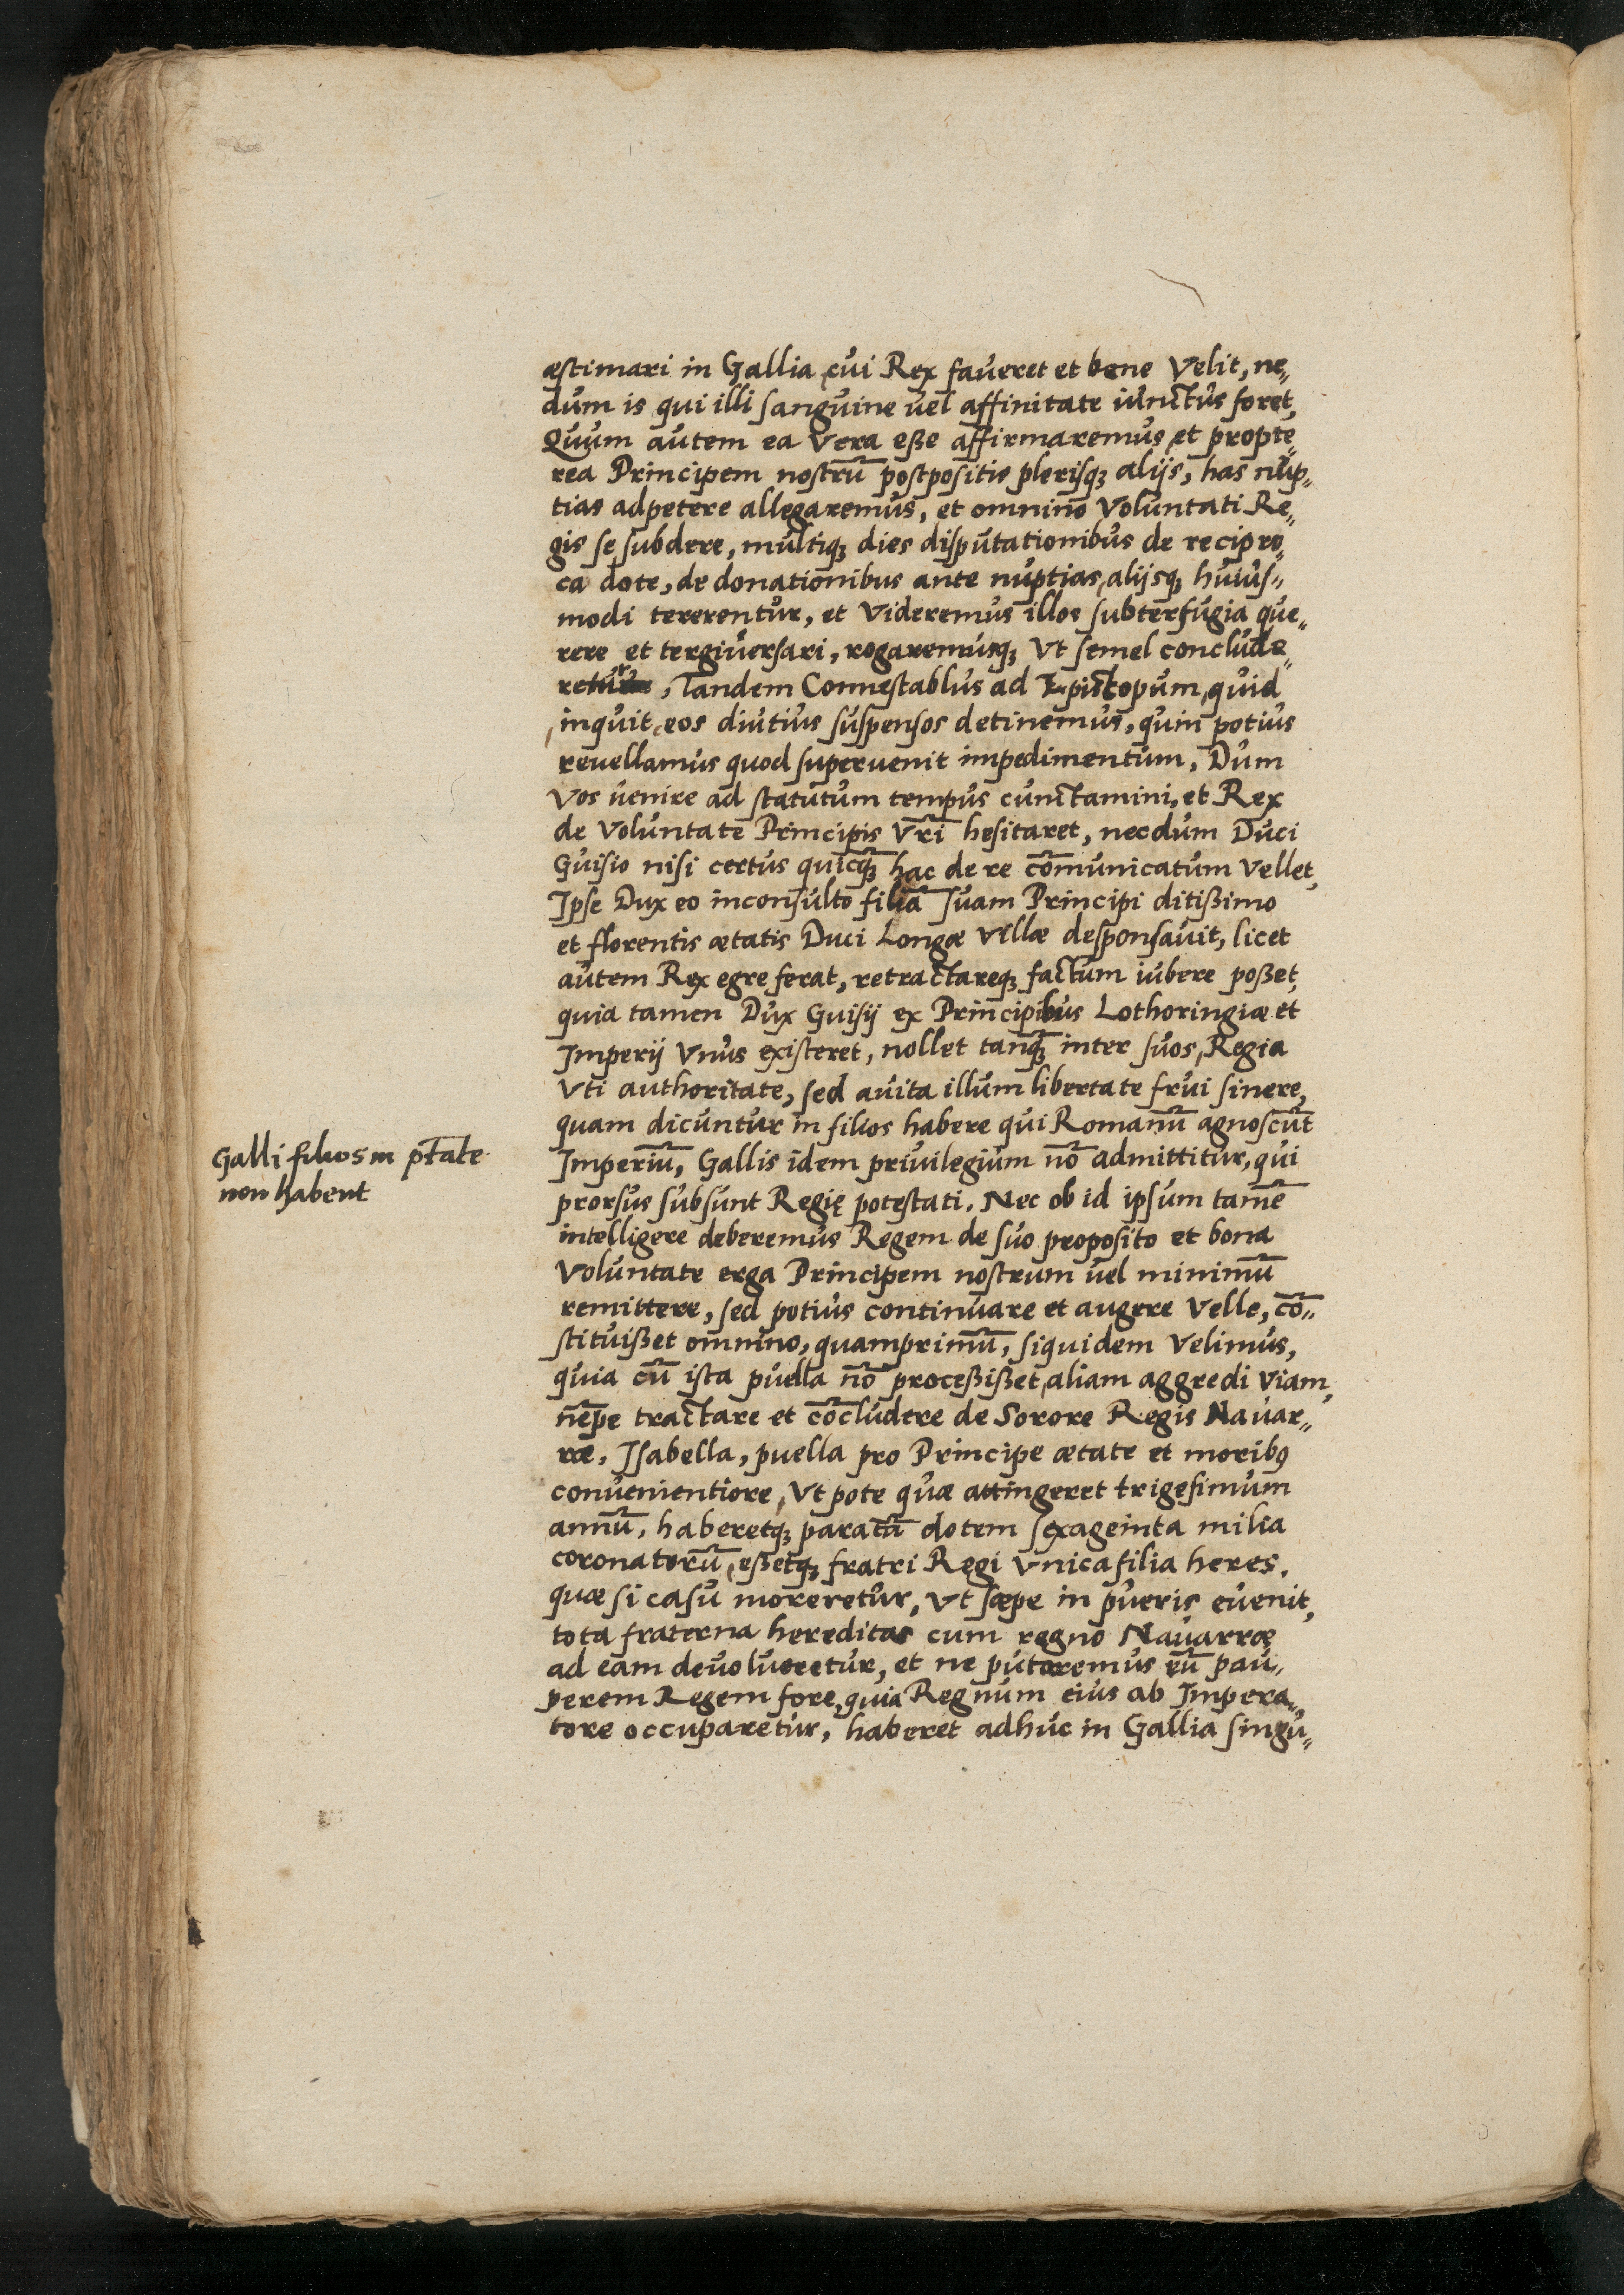 æstimari in Gallia, cui Rex faveret et bene Velit, ne„
dum is qui illi sanguine vel affinitate iunctus foret,
Quum autem ea Vera eße affirmaremus, et propte„
rea Principem nostrū postpositis plerisqꝫ alijs, has nup„
tias adpetere allegaremus, et omnino Voluntati Re„
gis se subdere, multiqꝫ dies disputationibus de recipro„
ca dote, de donationibus ante nuptias, alijsqꝫ huius„
modi tererentur, et Videremus illos subterfugia que„
rere et tergiversari, rogaremusqꝫ Vt semel conclude„
retur, Tandem Connestablus ad Episcopum, quid
inquit, eos diutius suspensos detinemus, quin potius
revellamus quod supervenit impedimentum, Dum
Vos venire ad statutum tempus cunctamini, et Rex
de Voluntate Principis Vr̄i hesitaret, necdum Duci
Guisio nisi certus quicq̄ꝫ hac de re cōmunicatum Vellet,
Ipse Dux eo inconsulto filiā suam Principi ditißimo
et florentis ætatis Duci Longæ Villæ desponsavit, licet
autem Rex egre ferat, retractareqꝫ factum iubere poßet,
quia tamen Dux Guisij ex Principibus Lothoringiæ et
Imperij Vnus existeret, nollet tanq̄ꝫ inter suos, Regia
Vti authoritate, sed avita illum libertate frui sinere,
quam dicuntur in filios habere qui Romanū agnoscūt
Imperiū, Gallis idem privilegium nō admittitur, qui
prorsus subsunt Regię potestati. Nec ob id ipsum tamē
intelligere deberemus Regem de suo proposito et bona
Voluntate erga Principem nostrum vel minimū
remittere, sed potius continuare et augere Velle, cō„
stituißet omnino, quamprimū, siquidem Velimus,
quia cū ista puella nō proceßißet, aliam aggredi Viam,
nēpe tractare et cōcludere de Sorore Regis Navar„
ræ, Isabella, puella pro Principe ætate et moribꝰ
convenientiore, Vt pote quæ attingeret trigesimum
annū, haberetqꝫ paratā dotem sexageinta milia
coronatorū, eßetqꝫ fratri Regi Vnica filia heres,
quæ si casu moreretur, Vt sæpe in pueris evenit,
tota fraterna hereditas cum regno Navarræ
ad eam devolveretur, et ne putaremus eū pau„
perem Regem fore, quia Regnum eius ab Impera„
tore occuparetur, haberet adhuc in Gallia singu„
Galli filios in ptāte
non habent